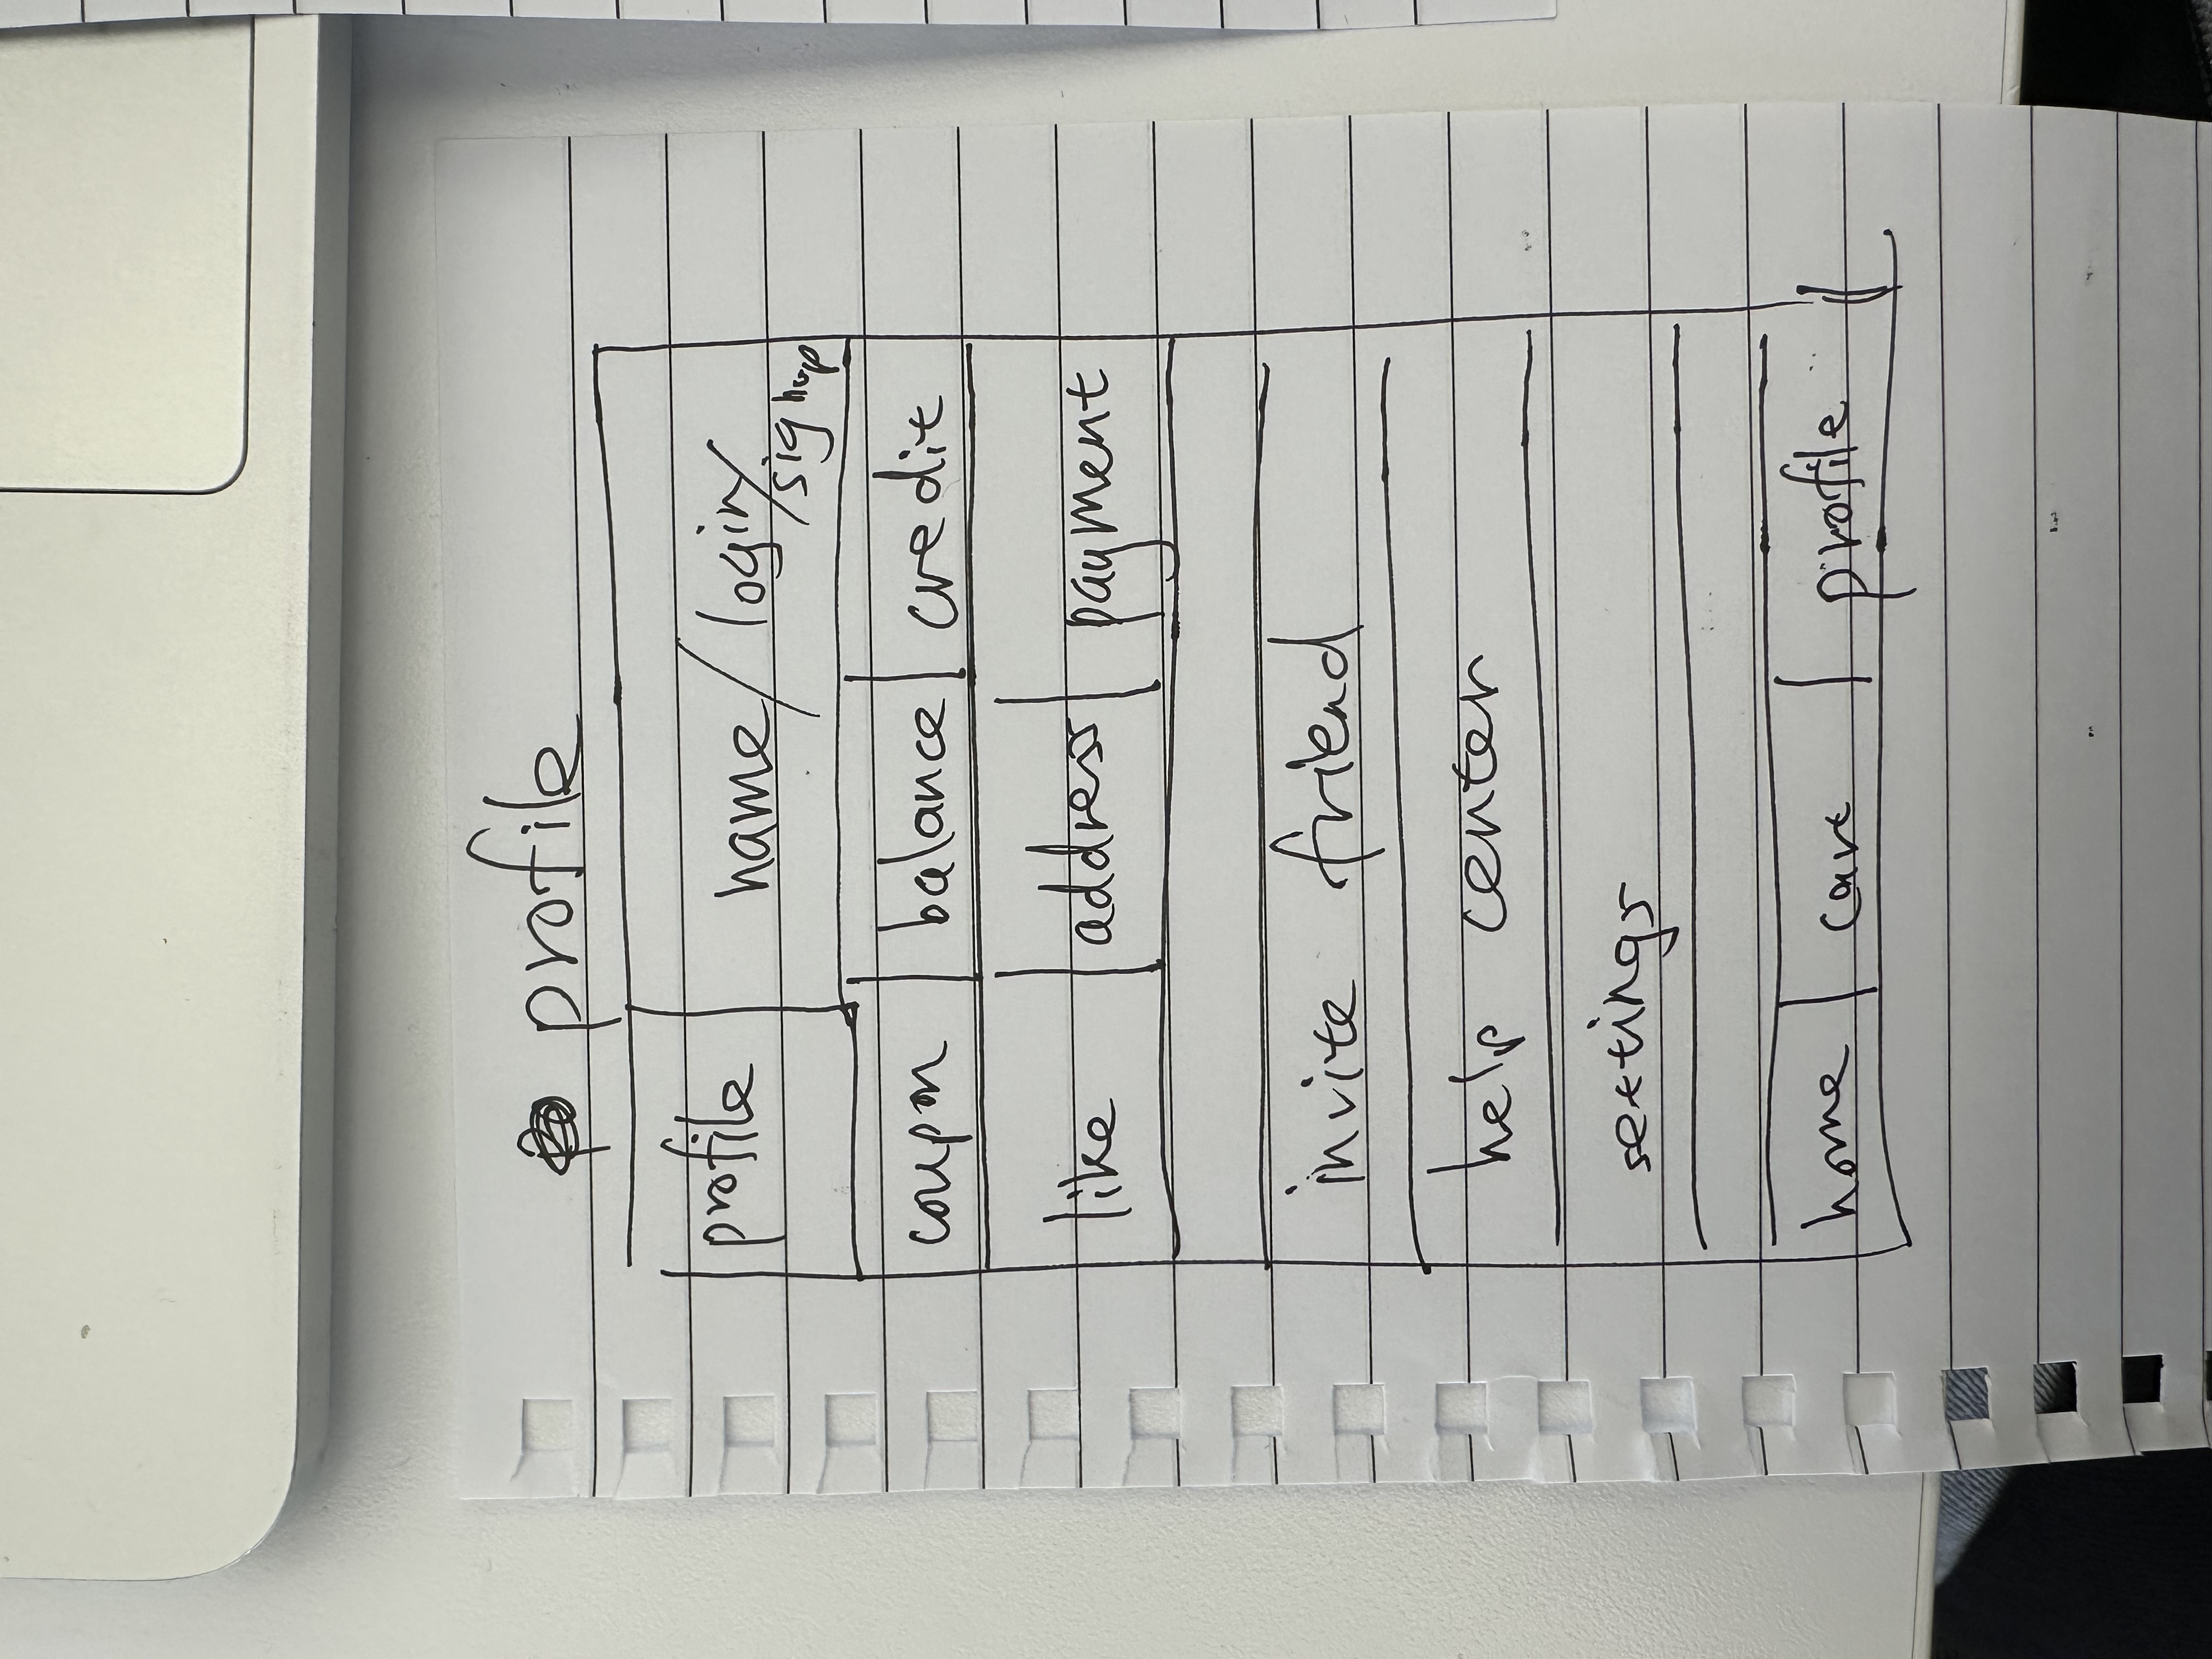 profile
profile name/login/
signup
coupon balance credit
like address payment
invite friend
help center
settings
home cart profile